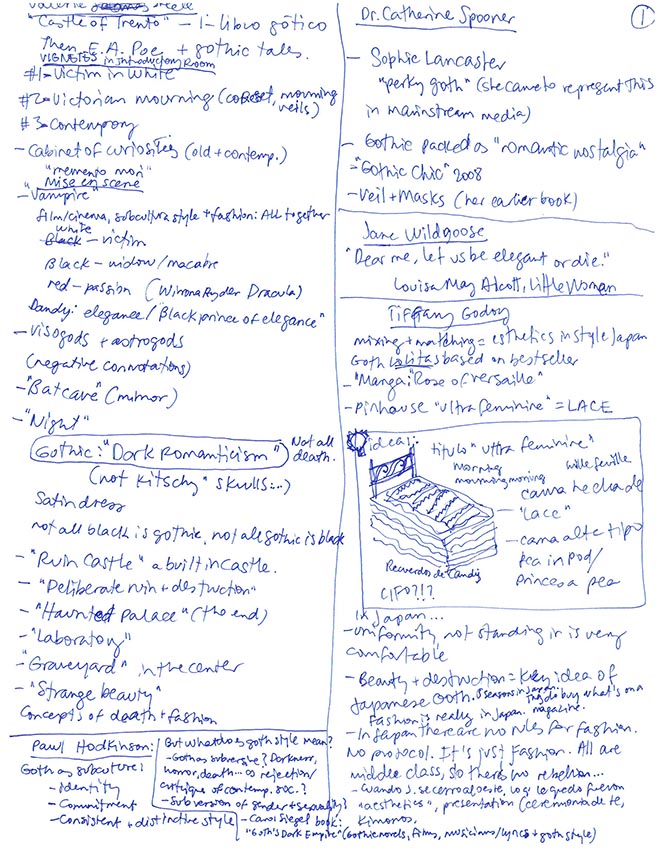 Valerie Steele
"Castle of Trento" – 1º libro gótico
Then E.A. Poe + gothic tales.
VIGNETES in Introductory Room
#1= Victim in White
#2= Victorian mourning (corset, mourning veils)
#3= Contemporary
– Cabinet of curiosities (old + contemp.)
"memento mori"
Mise en scene
– "Vampire"
film/cinema, subculture style + fashion: All together
white
Black – victim
Black – widow/macabre
red – passion (Winona Ryder Dracula)
Dandy: elegance/"Black prince of elegance"
– Visogods + ostrogods
(negative connotations)
– "Batcave" (mirror)
– "Night"
Gothic: "Dark Romanticism"
Not all death.
(not kitschy "skulls...)
Satin dress
not all black is gothic, not all gothic is black
– "Ruin Castle" a built in castle.
– "Deliberate ruin + destruction"
– "Haunted Palace" (the end)
– "Laboratory"
– "Graveyard" in the center
– "Strange beauty"
Concepts of death + fashion
Paul Hodkinson:
Goth as subculture:
– Identity
– Commitment
– Consistent + distinctive style
But what does goth style mean?
– Goth as subversive? Darkness,
horror, death... rejection/
critique of contemp. soc.?
– Subversion of gender + sexuality?
– Carol Siegel book:
"Goth's Dark Empire" (Gothic novels, films, musicians/lyrics + goth style)
1
Dr. Catherine Spooner
– Sophie Lancaster
"perky goth" (she came to represent this
in mainstream media)
– Gothic packed as "romantic nostalgia"
= "Gothic Chic" 2008
– Veil + Masks (her earlier book)
Jane Wildgoose
"Dear me, let us be elegant or die."
Louisa May Alcott, Little Woman
Tiffany Godoy
mixing + matching = esthetics in style Japan
Goth lolitas based on bestseller
– "Manga: "Rose of Versaille"
– Pinhouse "ultra feminine" = LACE
idea:
titulo "ultra feminine"
morning
mourning morning
mille feuille
cama hecha de
"lace"
– cama alta tipo
Pea in Pod/
Princesa pea
Recuerdos de Candis
CIFO?!?
In Japan...
– uniformity not standing in is very
comfortable
– Beauty + destruction = Key idea of
Japanese Goth.
Fashion is really in Japan
magazine.
– In Japan there are no rules for fashion.
No protocol. It's just Fashion. All are
middle class, so there's no rebelion...
– Cuando J. se cerro al oeste, lo q' le quedo fueron
"aesthetics", presentation (ceremonia de te,
Kimonos,